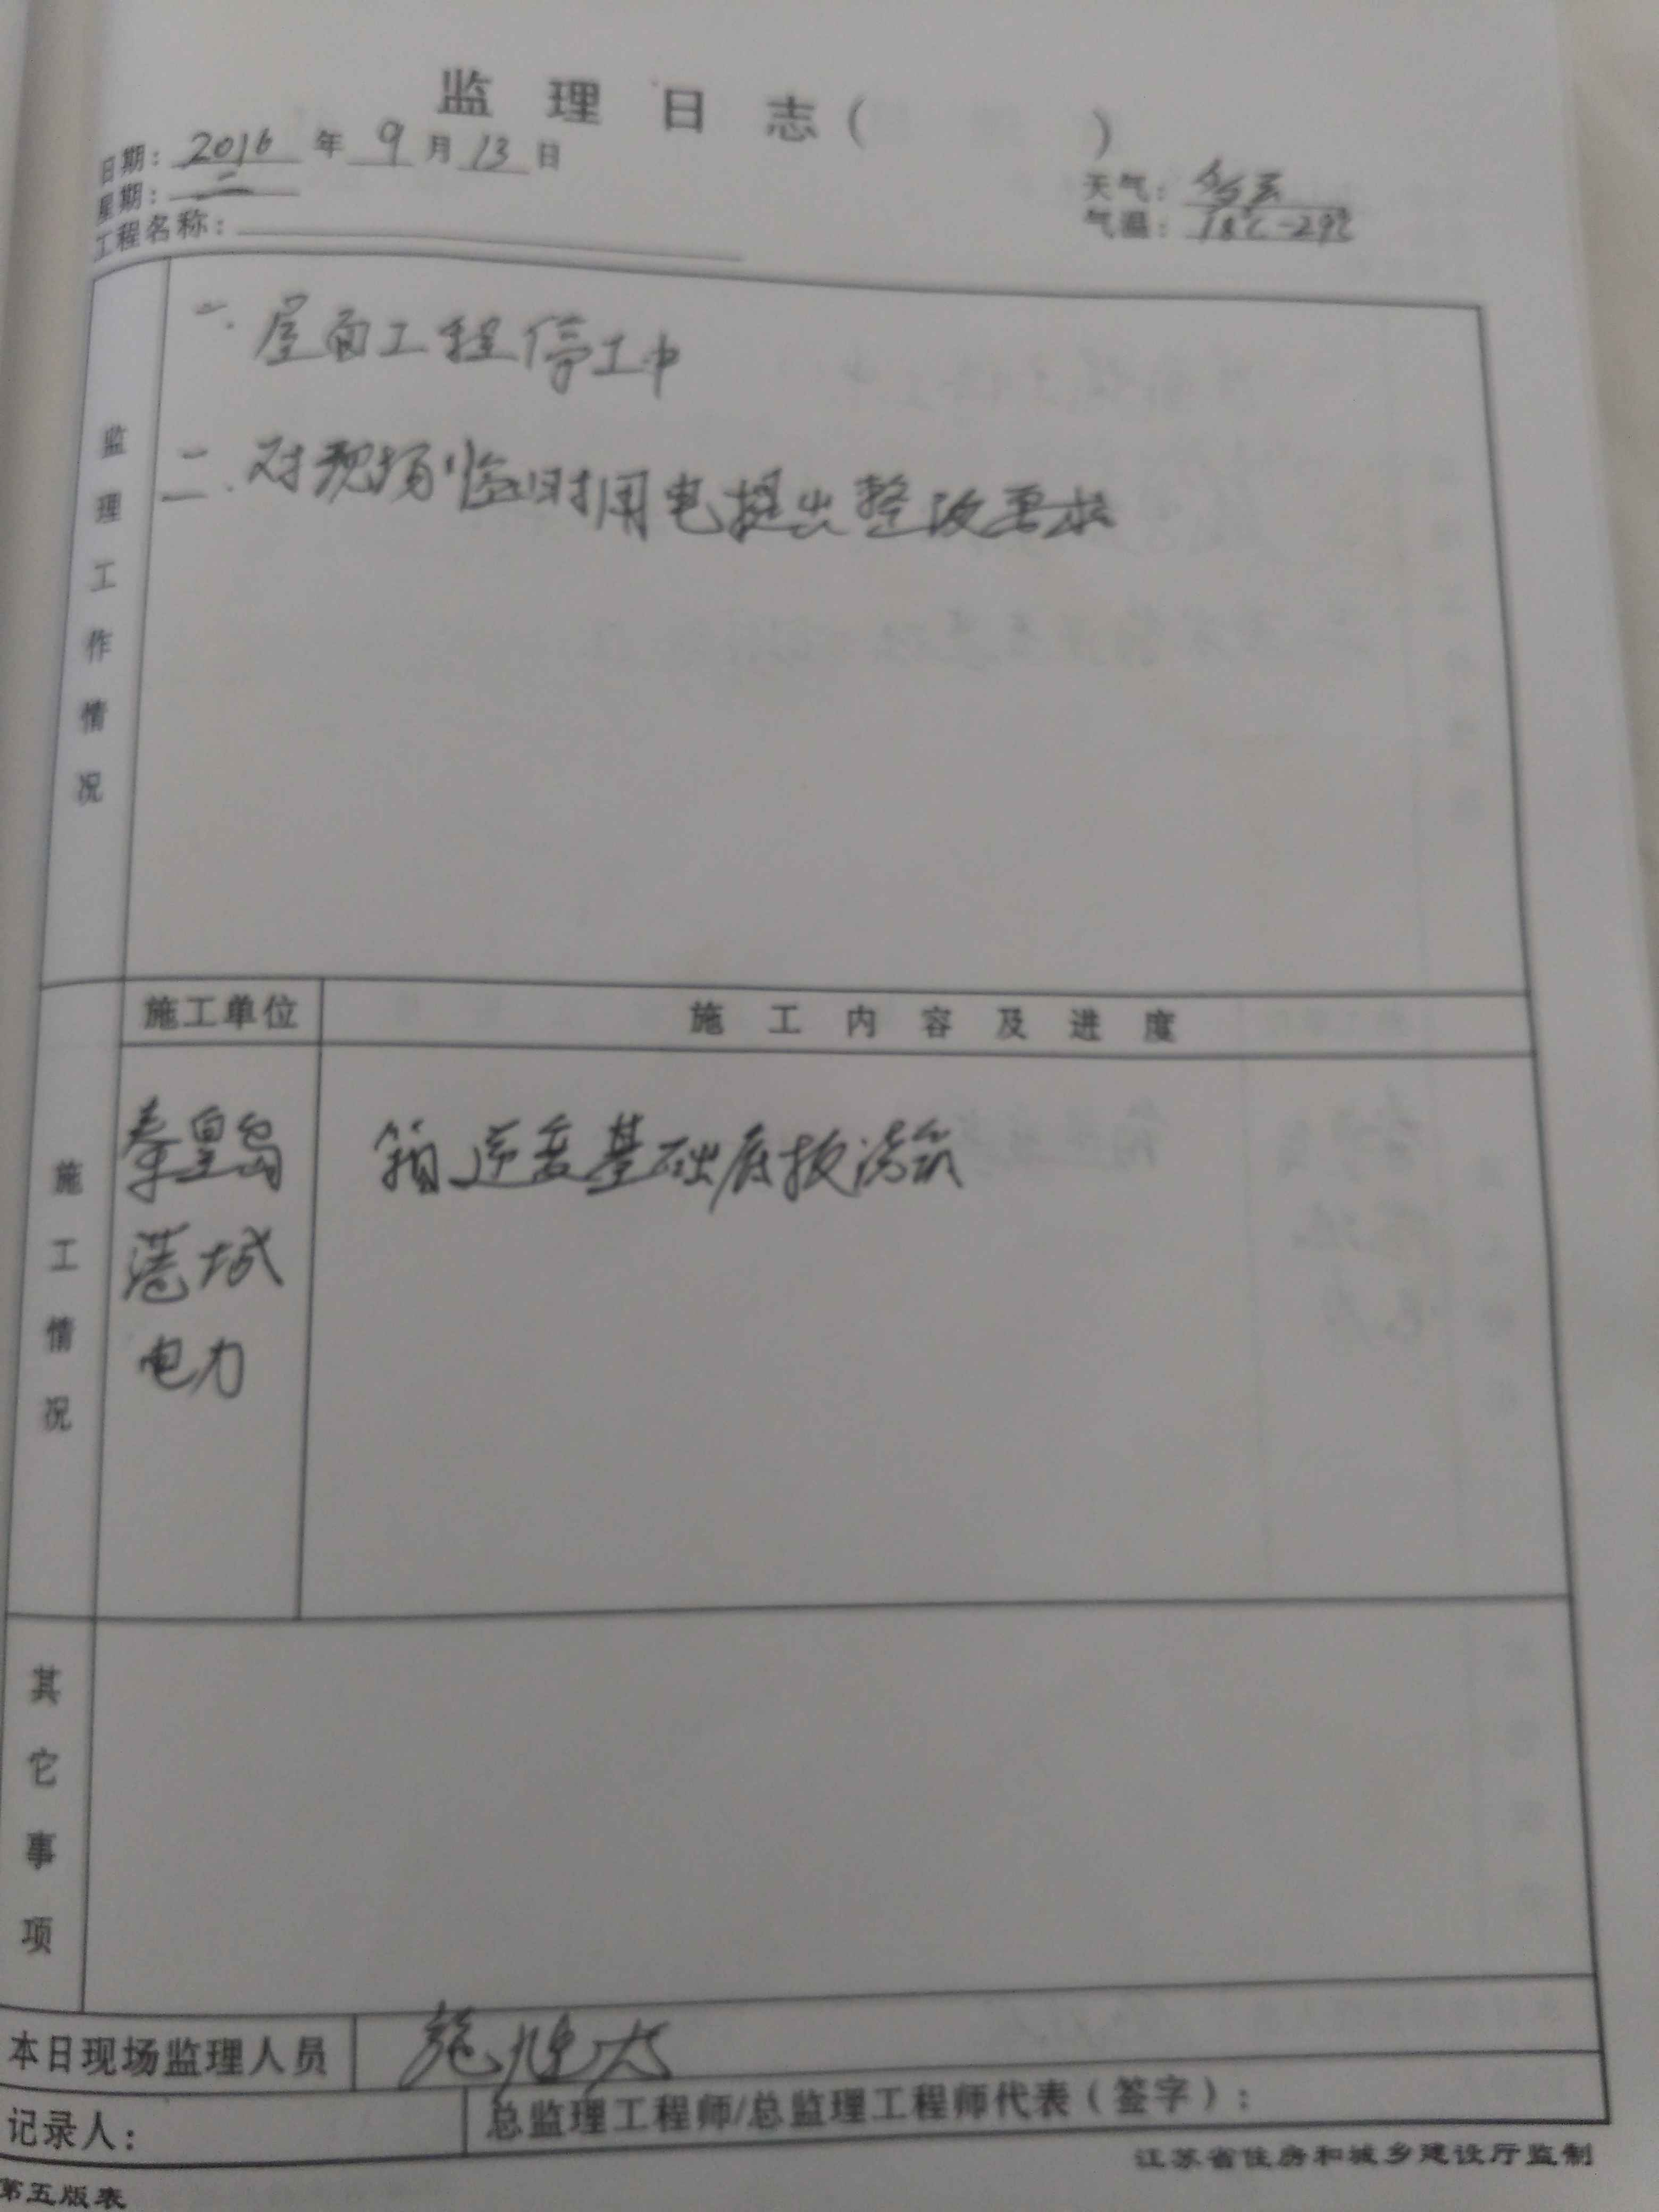 监理日志（ ）
日期：2016年9月13日
星期：二
天气：多云
工程名称：
气温：18℃-29℃
监理工作情况
一、屋面工程停工中
二、对现场临时用电提出整改要求
施工情况
施工单位 施工内容及进度
秦皇岛 箱逆变基础底板浇筑
港城
电力
其它事项
本日现场监理人员 施
记录人： 总监理工程师/总监理工程师代表（签字）：
江苏省住房和城乡建设厅监制
第五版表